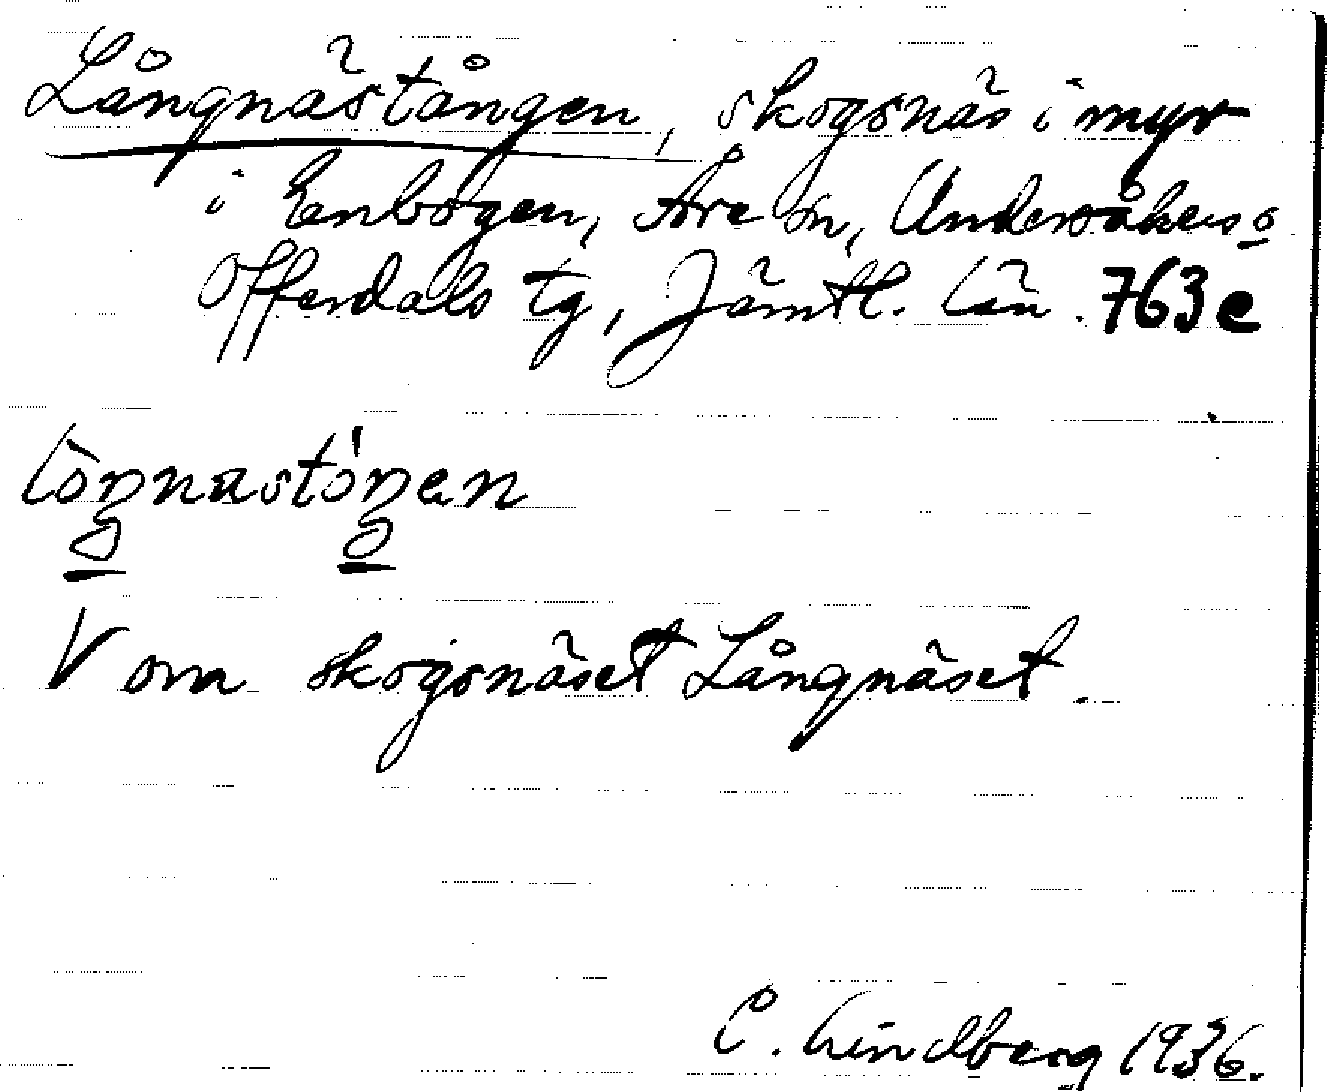 Långnästången, skogsnäs i myr
i Enbogen, Åre sn, Undersåkers o
Offerdals tg, Jämtl. län. 763e
V om skogsnäset Långnäset.
C. Lindberg 1936.